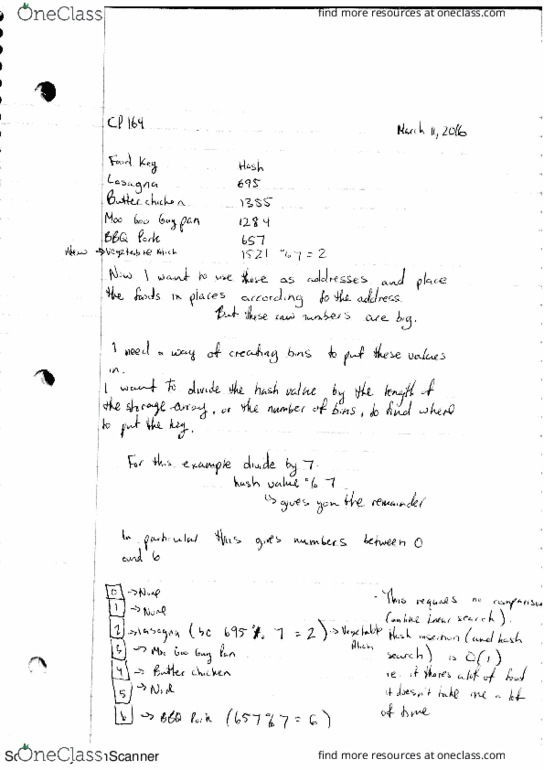 OneClass
find more resources at oneclass.com
CP 164
March 11, 2016
Food Key Hash
Lasagna 695
Butter chicken 1355
Moo Goo Guy pan 1284
BBQ Pork 657
New → Vegetable 1521 % 7 = 2
Now I want to use these as addresses and place
the foods in places according to the address.
But these raw numbers are big.
I need a way of creating bins to put these values
in.
I want to divide the hash value by the length of
the storage array, or the number of bins, to find where
to put the key.
For this example divide by 7.
hash value % 7
↳ gives you the remainder
In particular this gives numbers between 0
and 6
0 → Null
1 → Null
2 → Lasagna (bc 695 % 7 = 2) → Vegetable
3 → Moo Goo Guy Pan
4 → Butter chicken
5 →
6 → BBQ Pork (657 % 7 = 6)
· This requires no comparison
(unlike linear search).
Hash insertion (and hash
search) is O(1)
ie. it stores a lot of food
it doesn't take me a lot
of time
OneClass
Scanner
find more resources at oneclass.com